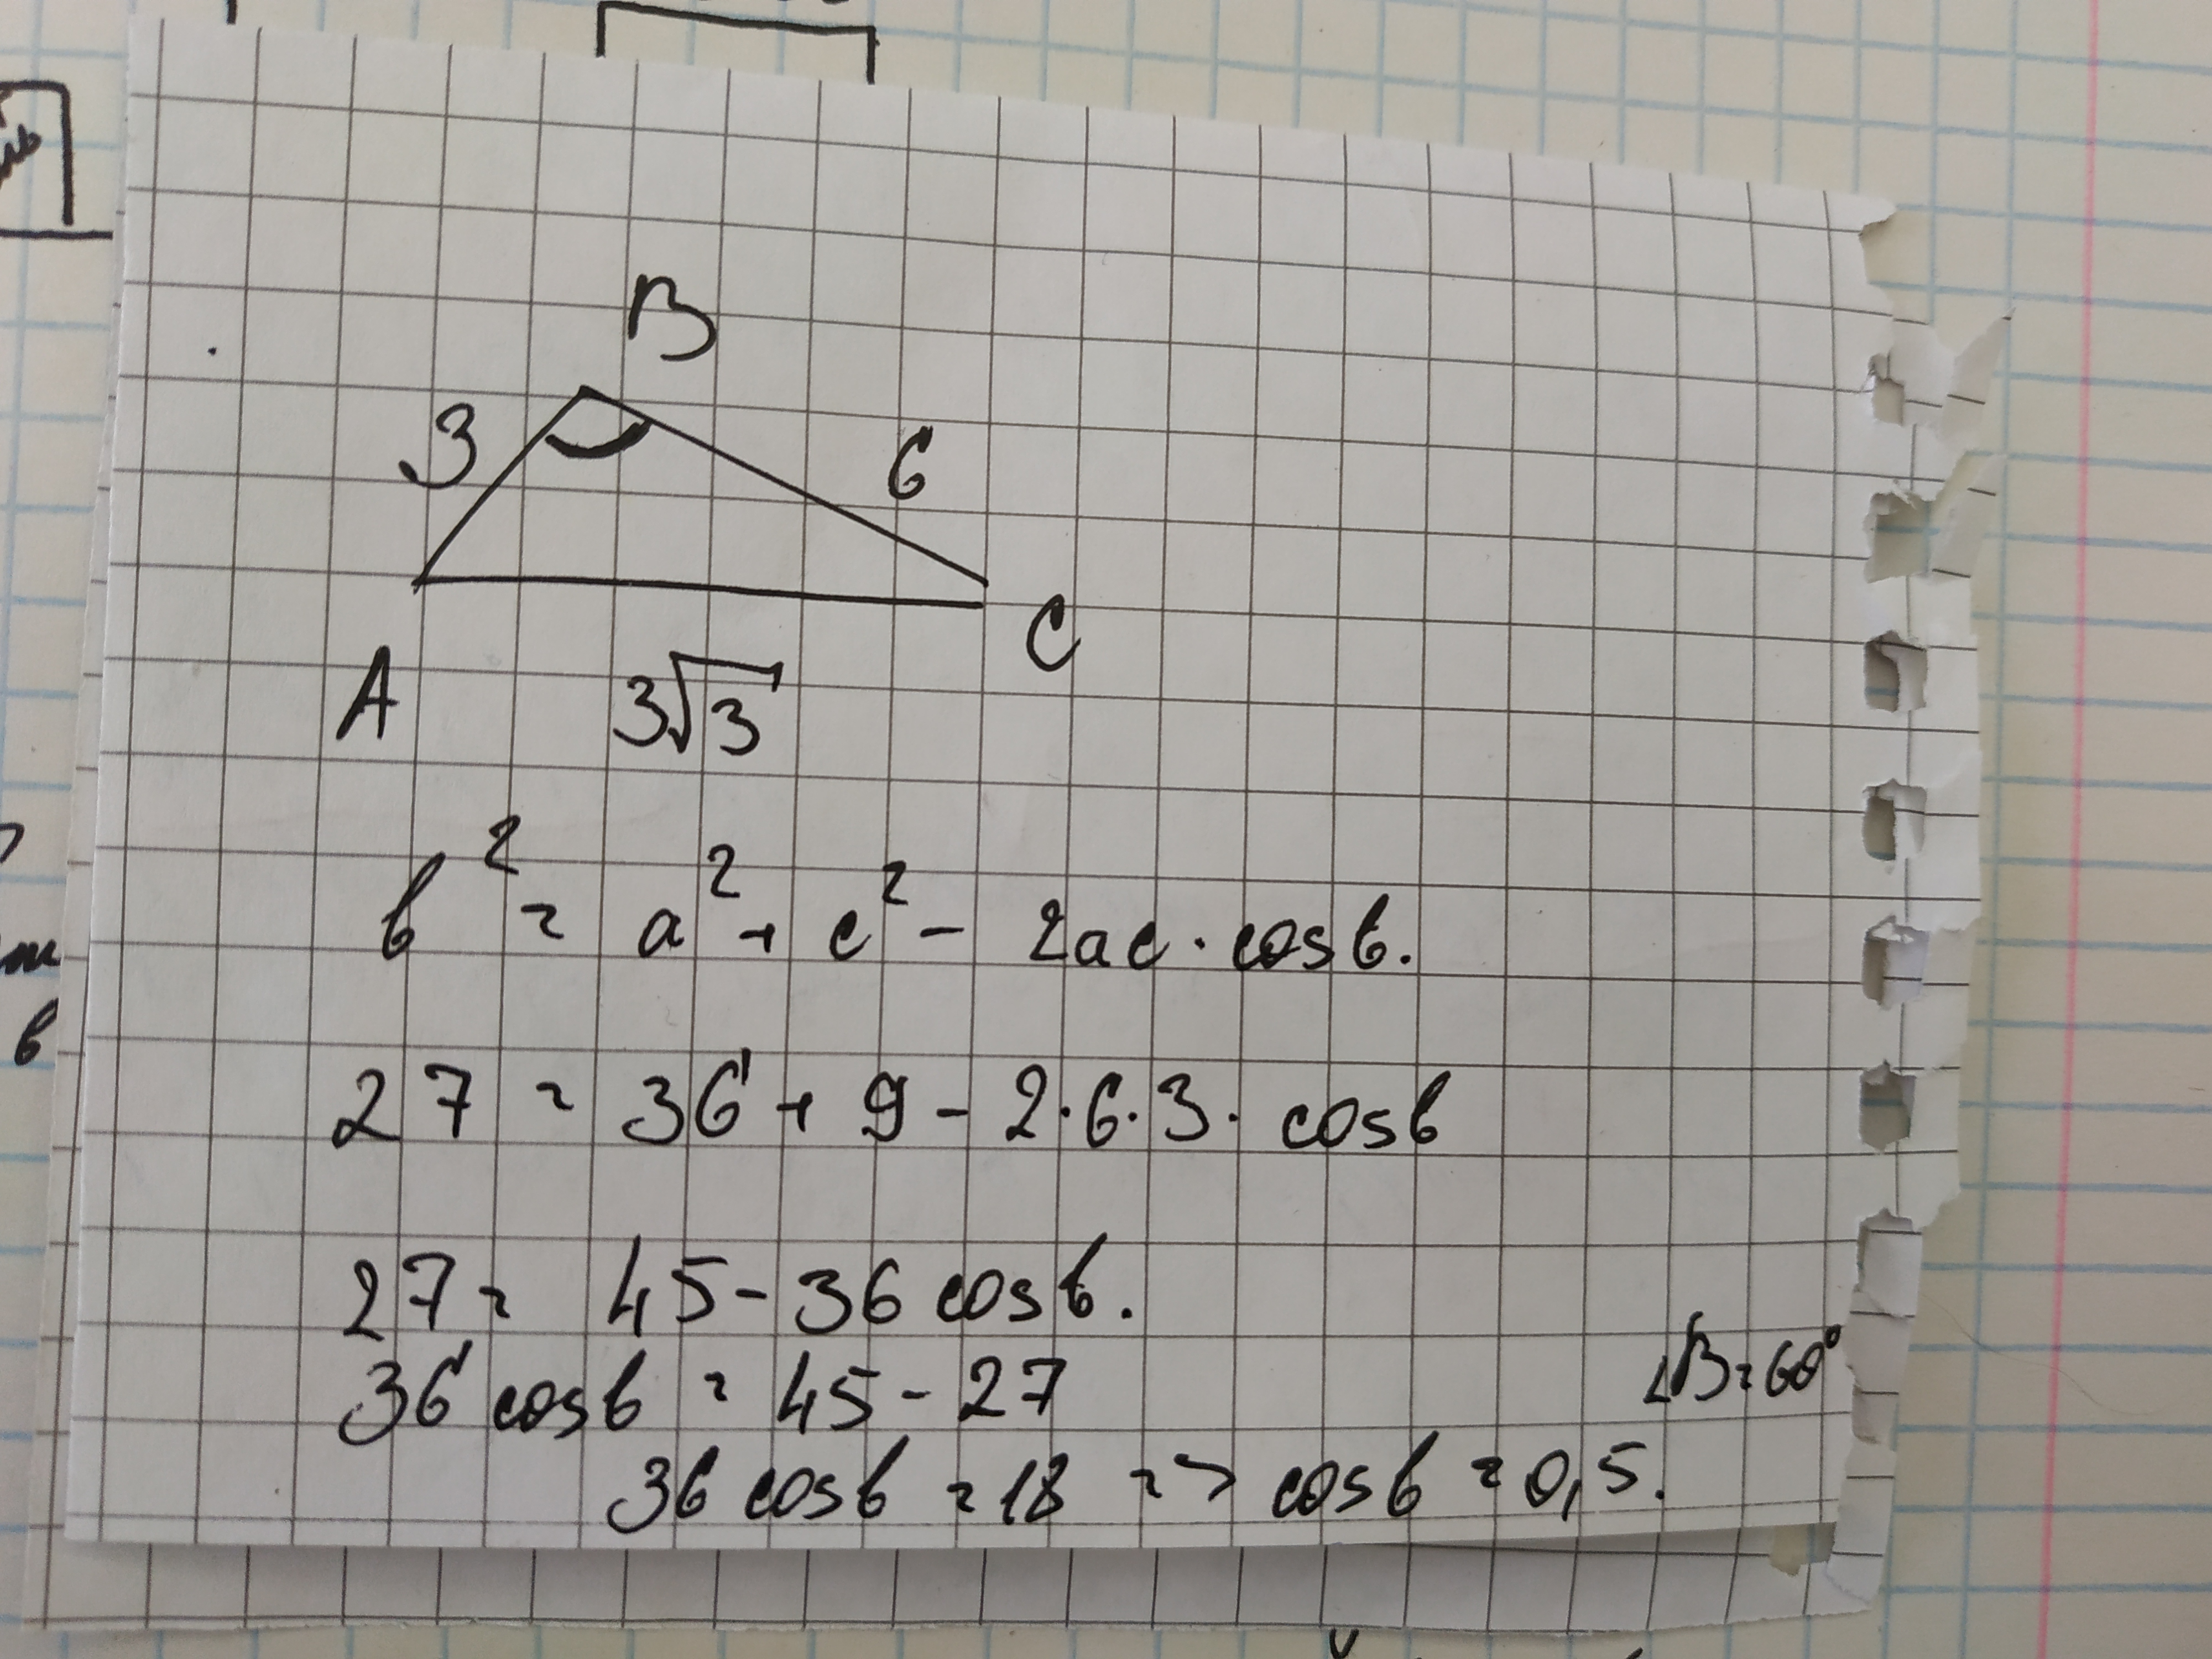 B
3
6
A
C
3√3
в² = a² + c² - 2ac · cos в.
27 = 36 + 9 - 2·6·3· cos в
27 = 45 - 36 cos в.
36 cos в = 45 - 27
∠B = 60°
36 cos в = 18 => cos в = 0,5.
в